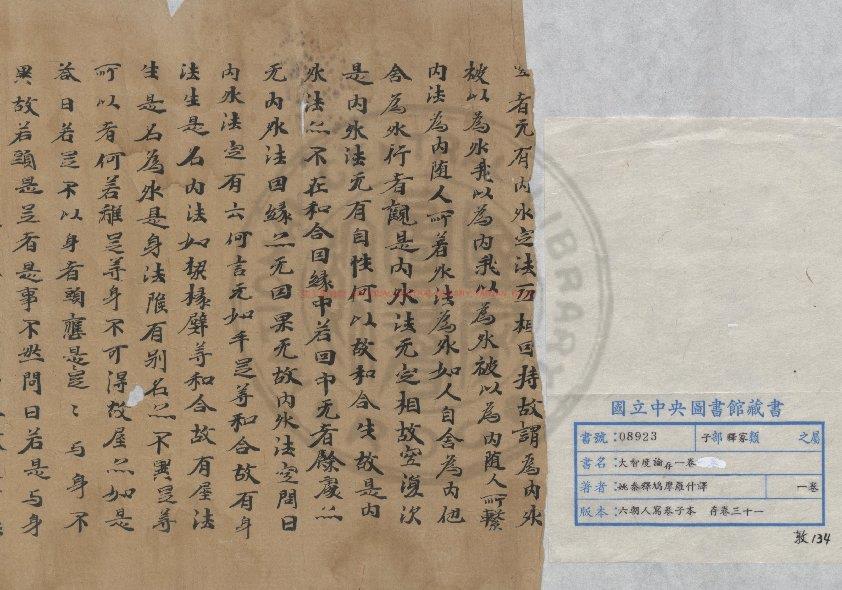 者无有内外定法互相因待故謂為内外
彼以為外我以為内我以為外彼以為内随人所繫
内法為内随人所着外法為外如人自舍為内他
舍為外行者觀是内外法无定相故空復次
是内外法无有自性何以故和合生故是内
外法亦不在和合因緣中若因中无者餘處亦
无内外法因緣亦无因果无故内外法空問曰
内外法定有云何言无如手足等和合故有身
法生是名内法如梁椽壁等和合故有屋法
生是名為外是身法雖有别名亦不異足等
所以者何若離足等身不可得故屋亦如是
荅曰若足不以身者頭應是足〻与身不
異故若頭是足者是事不然問曰若足与身
國立中央圖書館藏書
書號:08923 子部 釋家類 之屬
書名:大智度論存一卷
著者:姚秦釋鳩摩羅什譯 一卷
版本:六朝人寫卷子本 存卷三十一
敦134